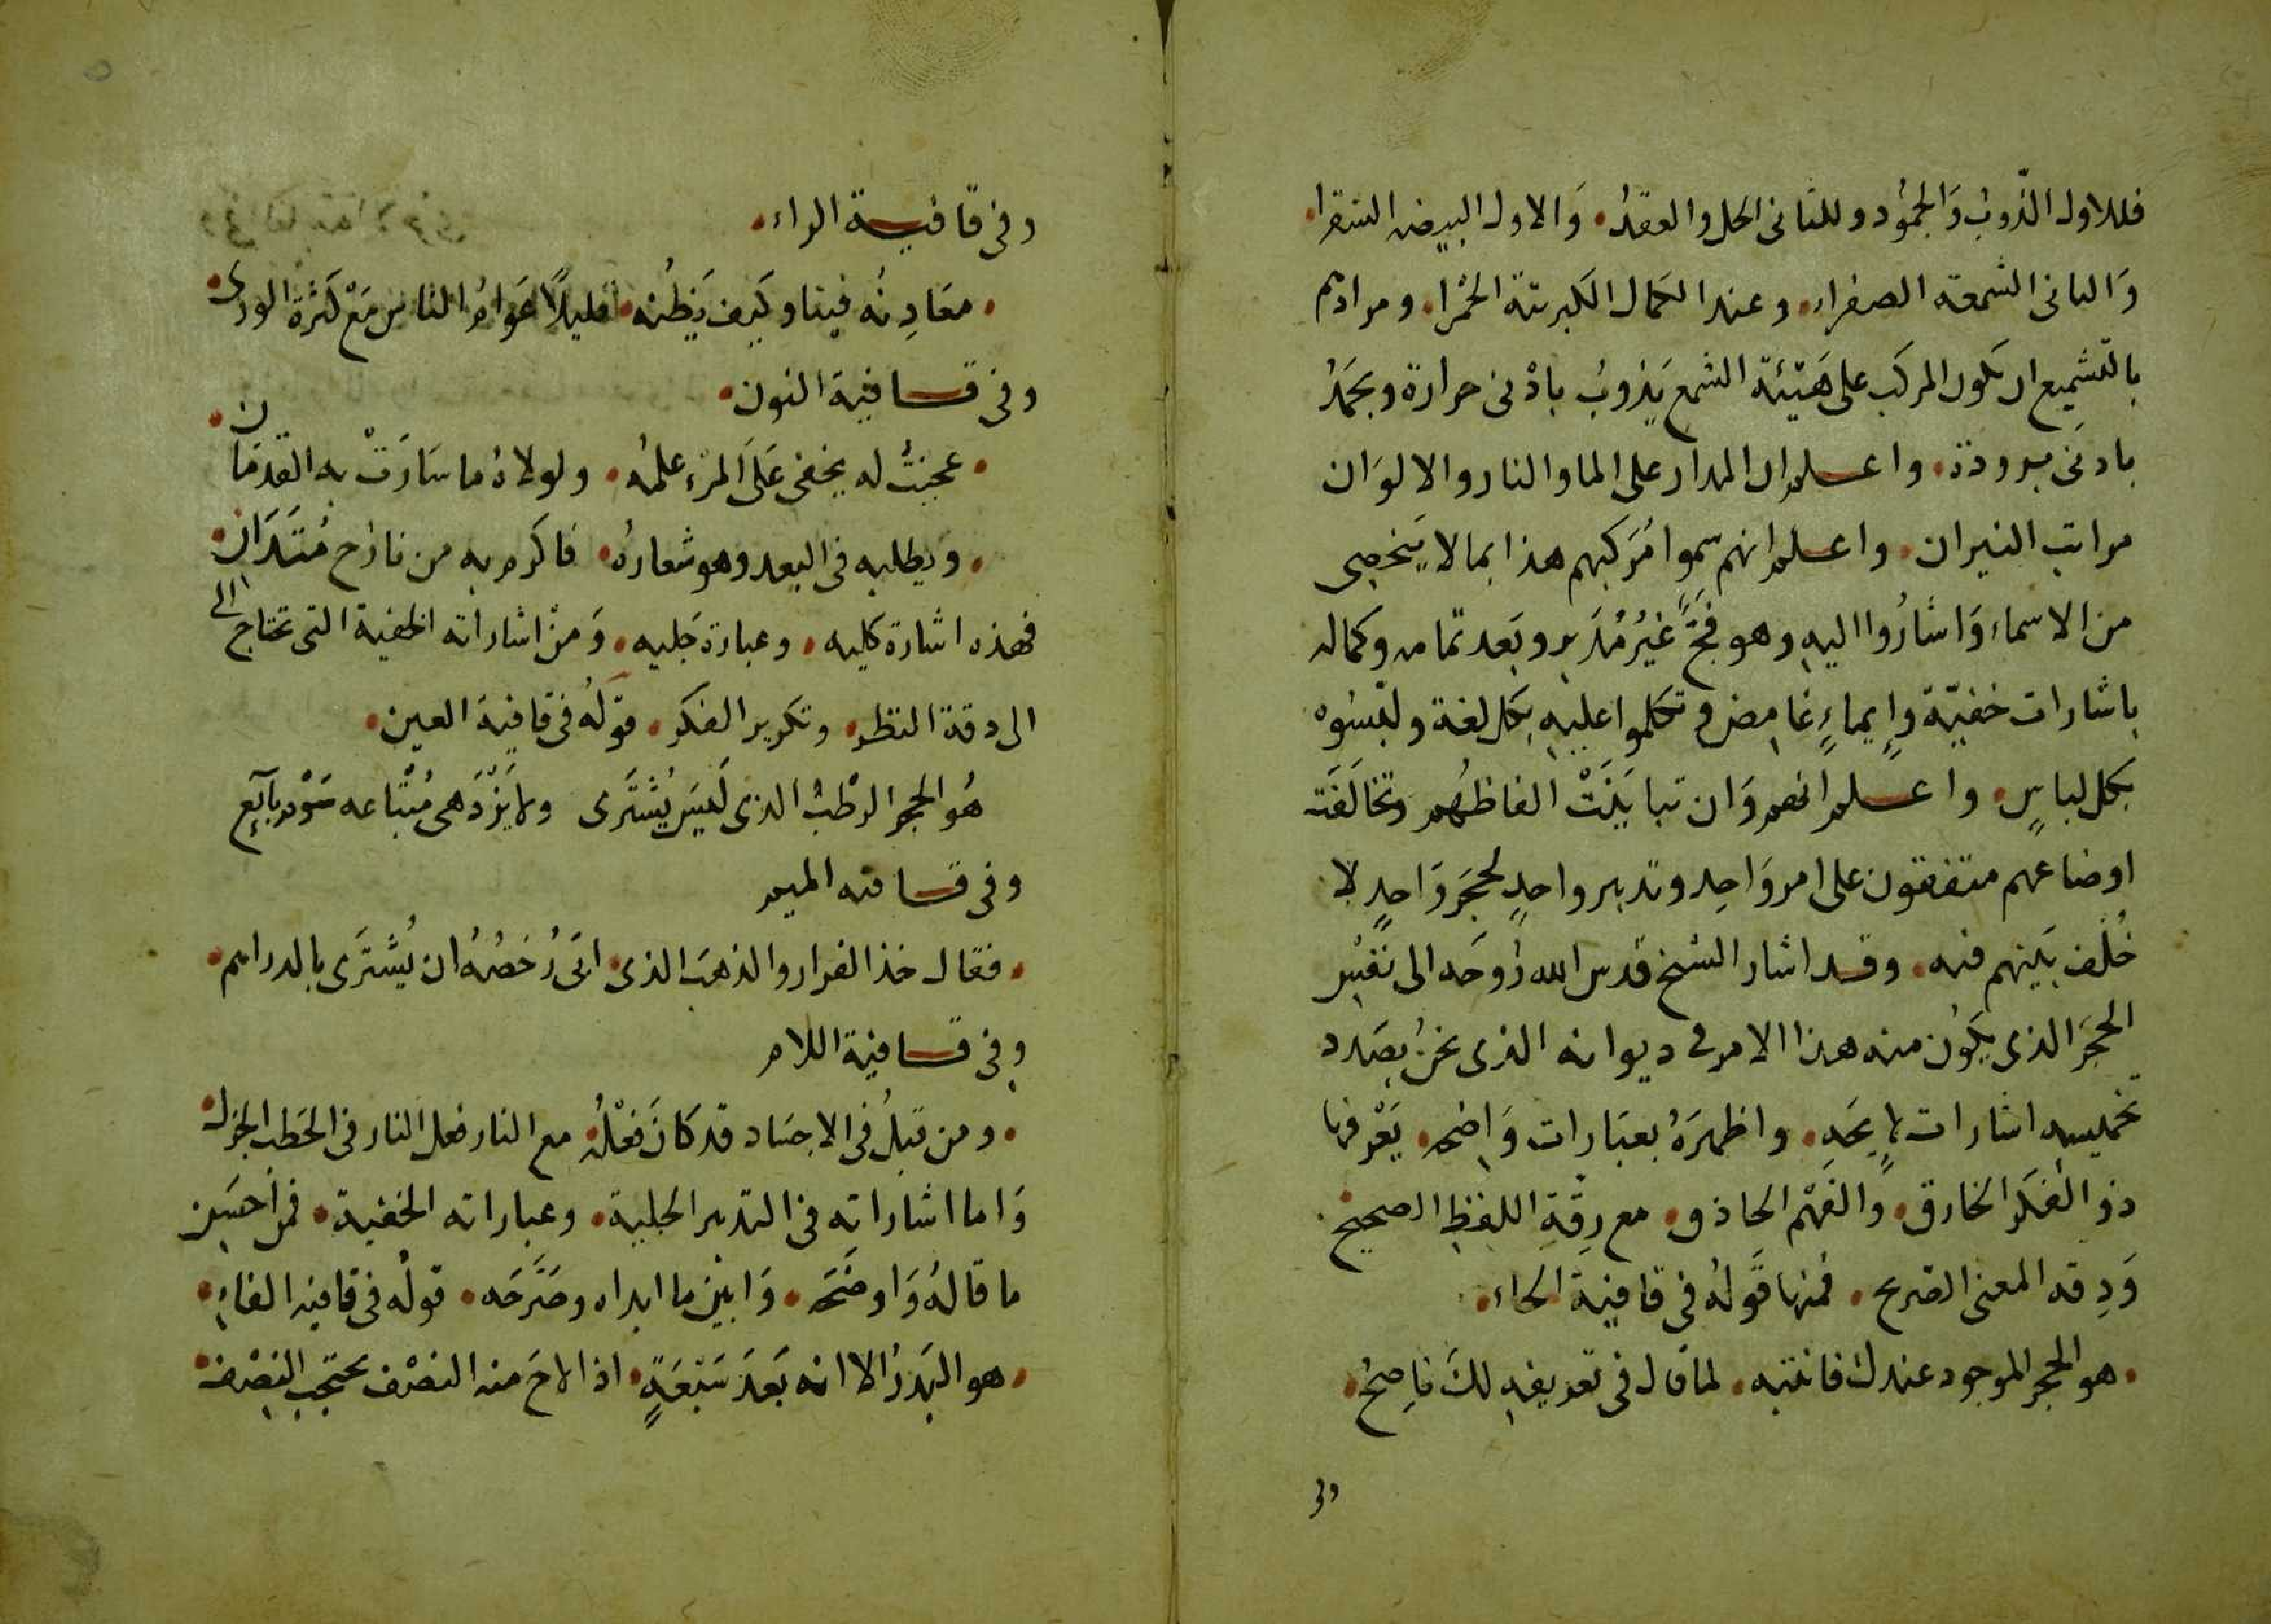 فللاول الذّوبُ وَالجمُود وللثانى الحل والعقدُ۰ وَالاول البيضه الشقرا۰
وَالثانى الشمعة الصفراء۰ وعند الكمال الكبريتة الحمْرا۰ ومرادهم
بالتّشميع ان يكون المركب على هَيْئة الشمع يَذوبُ بادْنى حرارة ويجمَدُ
بادنى برودة۰ واعلم ان المدار على الما والنار والالوَان
مراتب النيران۰ واعلم انهم سموا مُرَكبهم هذا بما لا يَنحصِى
من الاسماء وَاشَارُوا اليهِ وهو فجّ غَيْرُ مُدَبر وبَعد تمامه وكماله
باشارات خفيّة وإيماءٍ غامِض وتكلموا عليهِ بكل لغة ولبّسُوه
بكل لباسٍ۰ واعلم انهم وَان تبايَنَتْ الفاظهُم وتخالَفَت
اوضاعهم متفقون على امر وَاحِد وتدبير واحدٍ لحجَر وَاحدٍ لا
خُلْف بَيْنهم فيه۰ وقد اشار الشيخ قدس الله رُوحَه الى نفْسِ
الحجَر الذى يكُون منه هذا الامر فى ديوانه الذى نحنُ بصَدد
تخميسه اشارات لا تُحَد۰ واظهرَهُ بعبَارات وَاضِحه۰ يَعْرفها
ذو الفكَر الخارق۰ وَالفَهْم الحاذق۰ مع رِقّةِ اللفظِ الصحيح
وَدِقه المعنى الصّريح۰ فمنها قَولُهُ فى قافيَة الحاء۰
۰ هو الحجر الموجود عندك فانتبه۰ لما قال فى تعريفهِ لكَ ناصِحُ۰
وفى
وفى قافيـة الراء۰
۰ معَادِنُه فينا وكَيف يَظُنه۰ قليلًا عَوامُ الناس مَعْ كَثْرة الورى۰
وفى قـافيَة النون۰
۰ عجبْتُ له يخفى عَلَى المرْءِ علمُه۰ ولولاهُ ما سَارَتْ به القدمَان۰
۰ ويطلبه فى البعد وهو شعارُه۰ فاكرم به من نازح مُتَدَانِ۰
فهذه اشارة كليه۰ وعبارة جَليه۰ وَمنْ اشاراته الخفية التى تحتاج الى
الى دقة النظر۰ وتكرير الفكر۰ قوْلُهُ فى قافيَة العين۰
هُو الحجر الرطْبُ الذى لَيسَ يُشْتَرى ولا يَزْدَهى مُبْتَاعه سَوْم بآيَع
وفى قـافيه الميم
۰ فقال خذ الفرار والذهبَ الذى۰ ابَى رُخصُهُ ان يُشْتَرَى بالدراهم۰
وفى قـافية اللام
۰ ومن قبْلُ فى الاجسَاد قد كانَ فعْلُهُ۰ مع النار فعل النار فى الحَطب الجزل۰
وَاما اشاراته فى التدبير الجلية۰ وعباراته الخفية۰ فمن احسَن
ما قالهُ وَاوضَحَه۰ وَابْين ما ابداه وصَرَّحَه۰ قولُه فى قافيه الفاءِ۰
۰ هو البَدرُ الا انه بَعدَ سَبْعَةٍ۰ اذا لاحَ منه النصْف يحتجب النِصْف۰